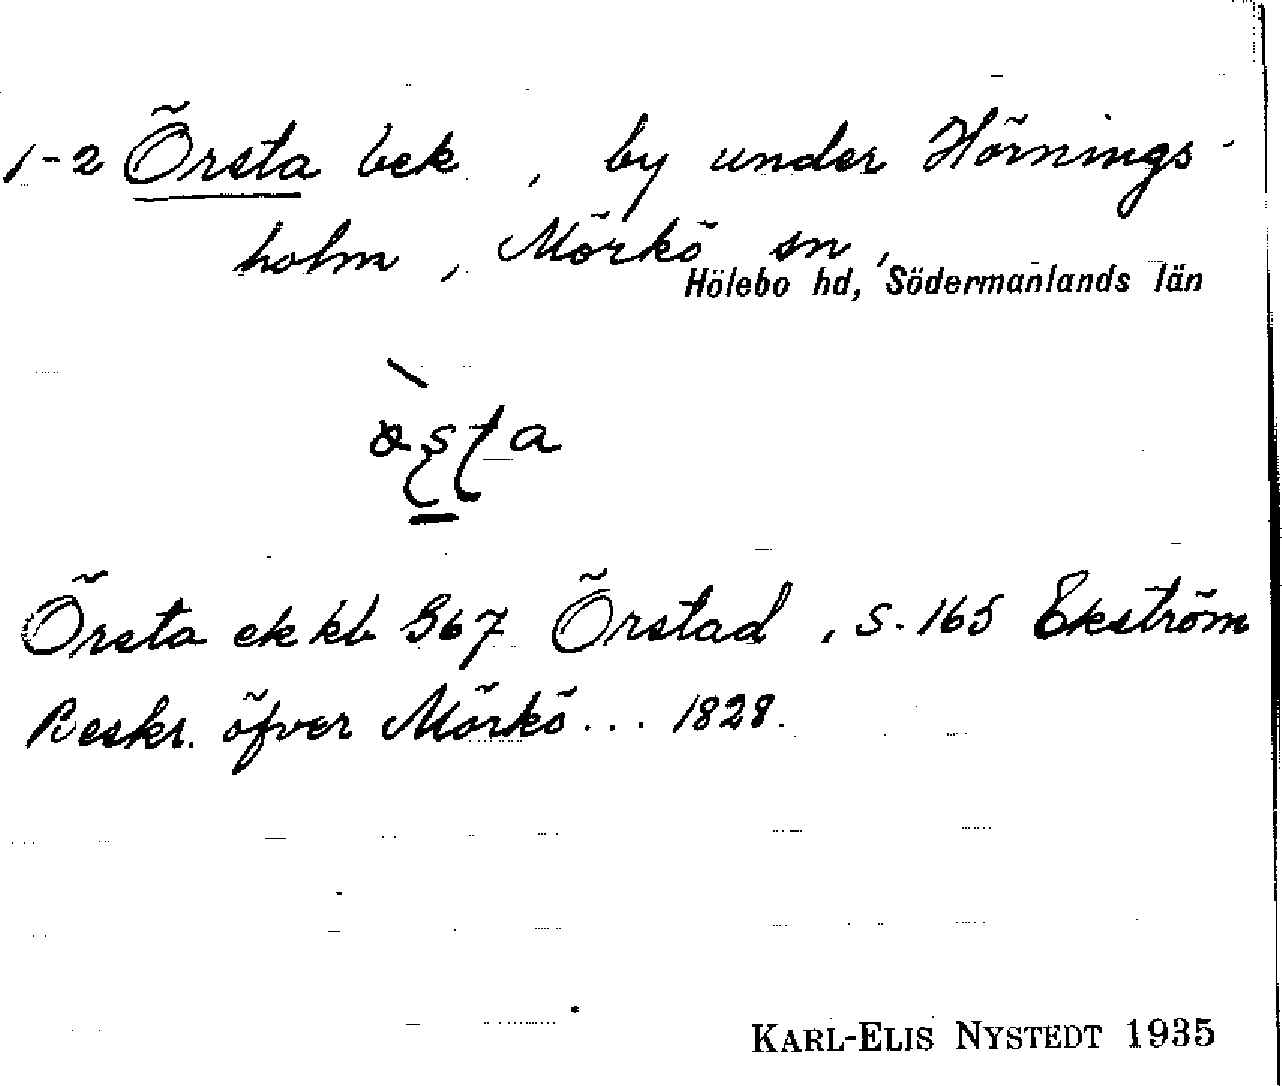 1-2 Örsta bek , by under Hörnings-
holm , Mörkö sn ,
Hölebo hd, Södermanlands län
Örsta ek kb 367 Örstad , s. 165 Ekström
Beskr. öfver Mörkö... 1828.
KARL-ELIS NYSTEDT 1935